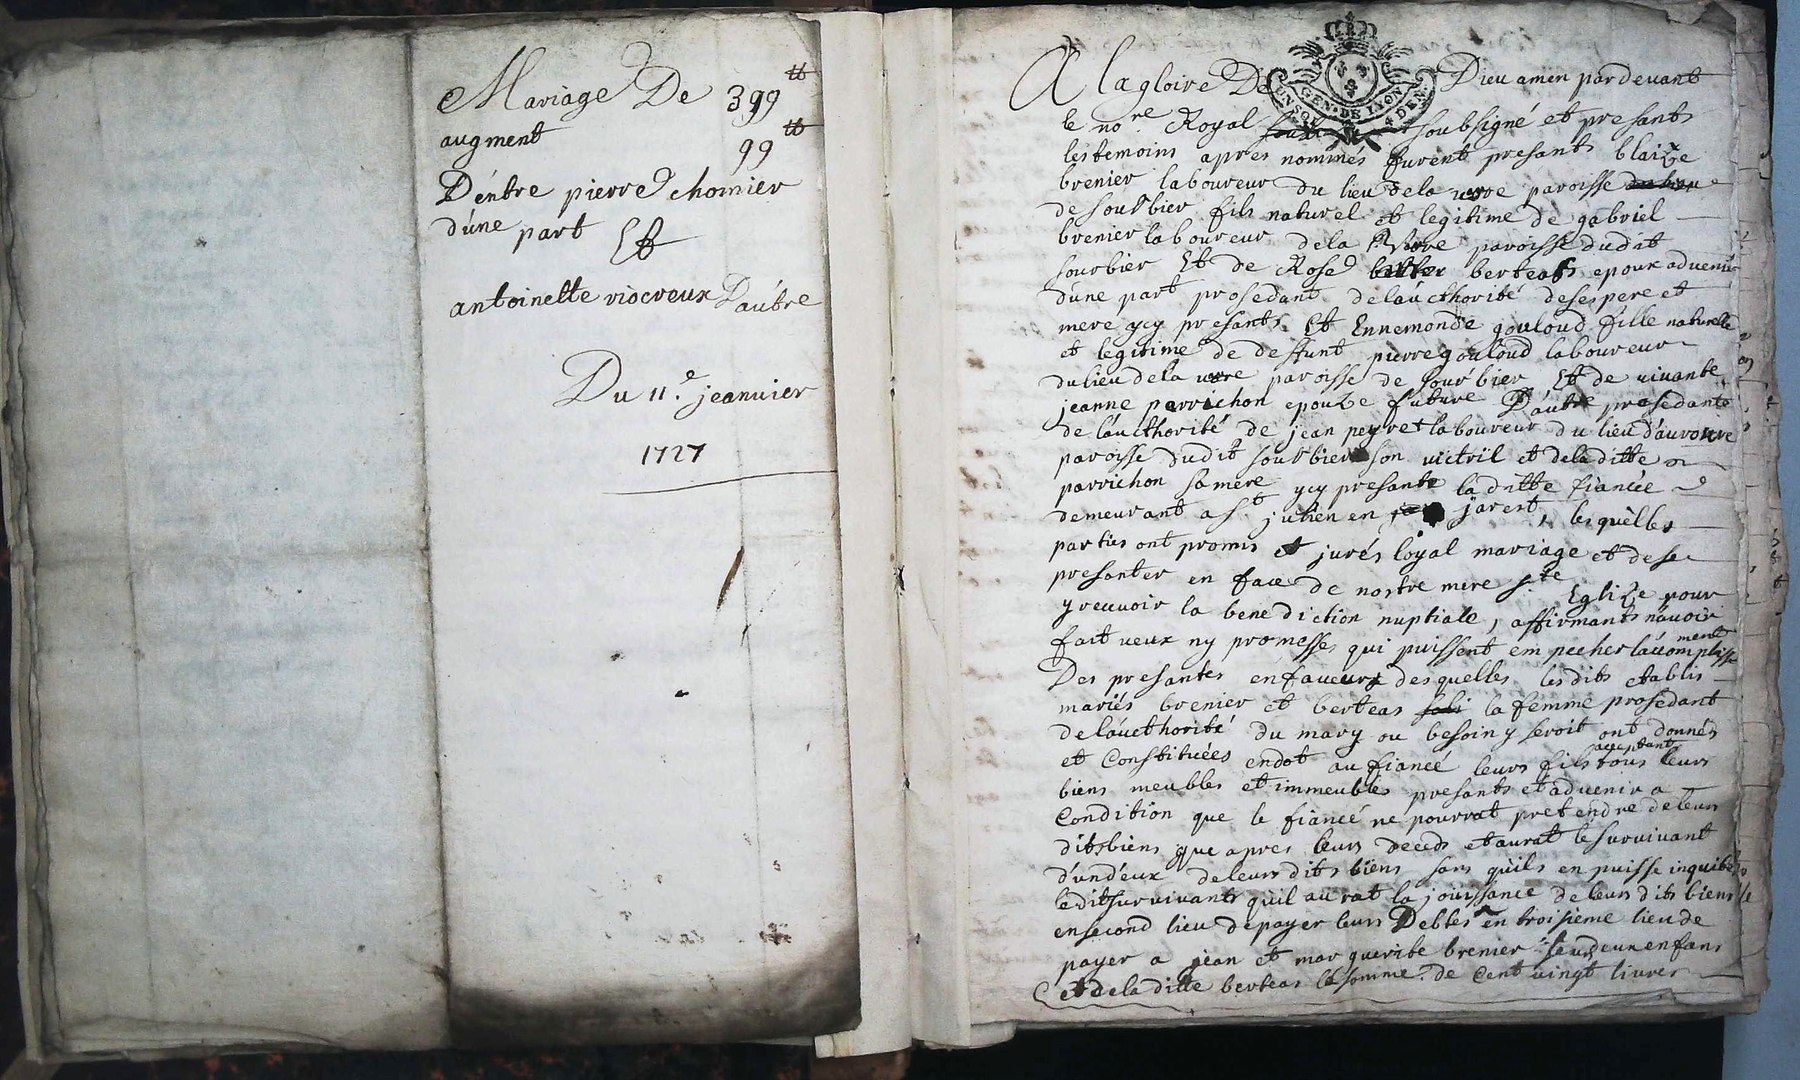 Mariage De 399 ₶
augment 99 ₶
D'entre pierre chomier
d'une part Et
antoinette viocreux D'autre
Du 11.e jeanvier
1727
A la gloire De Dieu amen pardevant
GEN. DE LYON
UN SOL 4 DEN.
le no.re Royal soubsigné et presants
les temoins apres nommés furent presants blaize
brenier laboureur du lieu de la paroisse
de sourbier fils naturel et legitime de gabriel
brenier laboureur de la paroisse dudit
sourbier Et de Rose berteas epoux advenir
d'une part prosedant de l'aucthorité de ses pere et
mere ycy presants Et Ennemonde gouloud fille naturelle
et legitime de deffunt pierre gouloud laboureur
du lieu de la paroisse de sourbier Et de vivante
jeanne perrichon epouze future D'autre prosedante
de l'aucthorité de jean peyret laboureur du lieu
paroisse dudit sourbier son et de la ditte
parrichon sa mere ycy presante la ditte fiancée
demeurant a St julien en jarest, lesquelles
parties ont promis et jurés loyal mariage et de se
presanter en face de nostre mere s.te Eglize pour
y recevoir la benediction nuptiale, affirmants n'avoir
fait veux ny promesses qui puissent empecher l'accomplisse
ment
Des presantes en faveurs desquelles lesdits etablis
mariés brenier et berteas la femme prosedant
de l'aucthorité du mary ou besoin y seroit ont donnés
et Constituées en dot au fiancé leurs fils acceptant tous leurs
biens meubles et immeubles presants et advenir a
Condition que le fiancé ne pourrat pretendre de leurs
dits biens que apres leurs deceds et aurat le survivant
d'un d'eux de leurs dits biens sans qu'ils en puisse inquiter
ledit survivants qu'il aurat la jouissance de leurs dits biens
en second lieu de payer leurs Debtes en troisieme lieu de
payer a jean et marguerite brenier leurs deux enfans
et de la ditte berteas la somme de Cent vingt livres